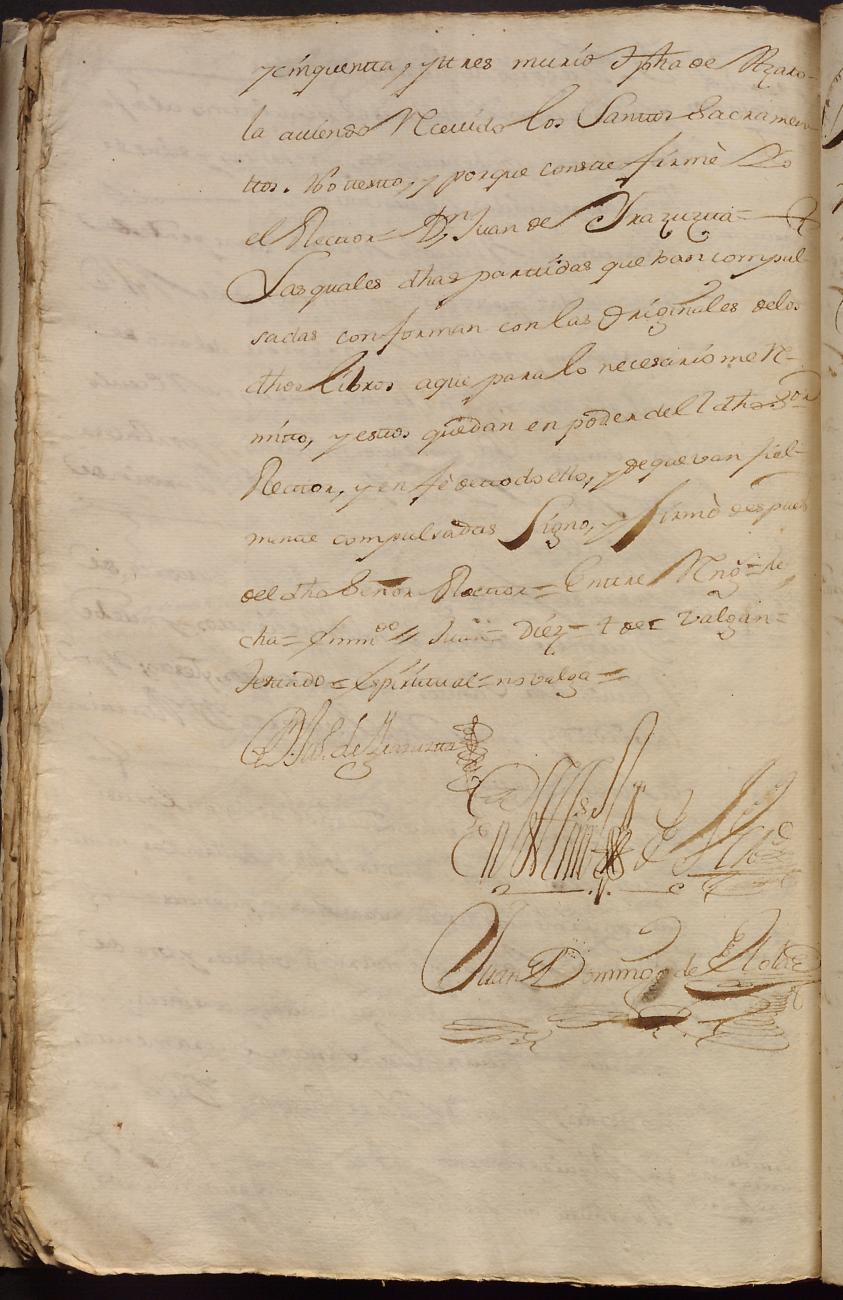 y cinquentta, y ttres murió Jpha de Azaro-
la aviendo Recevido los Santtos Sacramen-
ttos. No testto, y porque constte firmè Yo
el Recttor = Dn Juan de Yrazuzttia =
Las quales dhas partidas que han compul-
sadas conforman con las Originales de los
dhos Libros aque para lo necesario me R-
mitto, y esttos quedan en poder del dho Sor
Recttor, y en fè de ttodo ello, y de que van fiel-
mentte compulsadas Signo, y firmè despues
del dho Señor Recttor = Enttre Rengs = he
cha = Juan = Diez = t de t valgan =
testtado = Espiritual = no valga =
D. Ju. de Yrazuztta
En ttestimo de Verd
Juan Domingo de